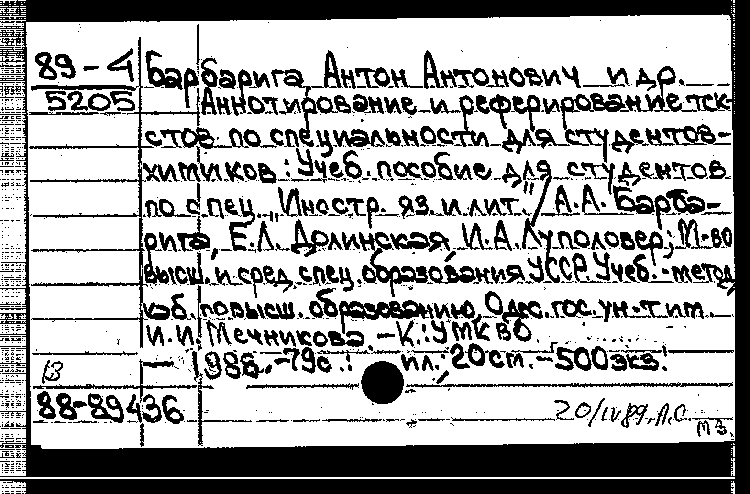 89-4 Барбарига Антон Антонович и др.
5205 Аннотирование и реферирование тек-
стов по специальности для студентов-
химиков: Учеб. пособие для студентов
по спец. „Иностр. яз. и лит."/А.А. Барба-
рига, Е.Л. Долинская, И.А. Куполовер; М-во
высш. и сред. спец. образования УССР, Учеб.-метод.
каб. по высш. образованию, Одес. гос. ун-т им.
И.И. Мечникова. -К.: УМК ВО
— 1988. -79с.: ил.; 20 ст. -500экз.
88-89436
20/IV 89. Л.С.